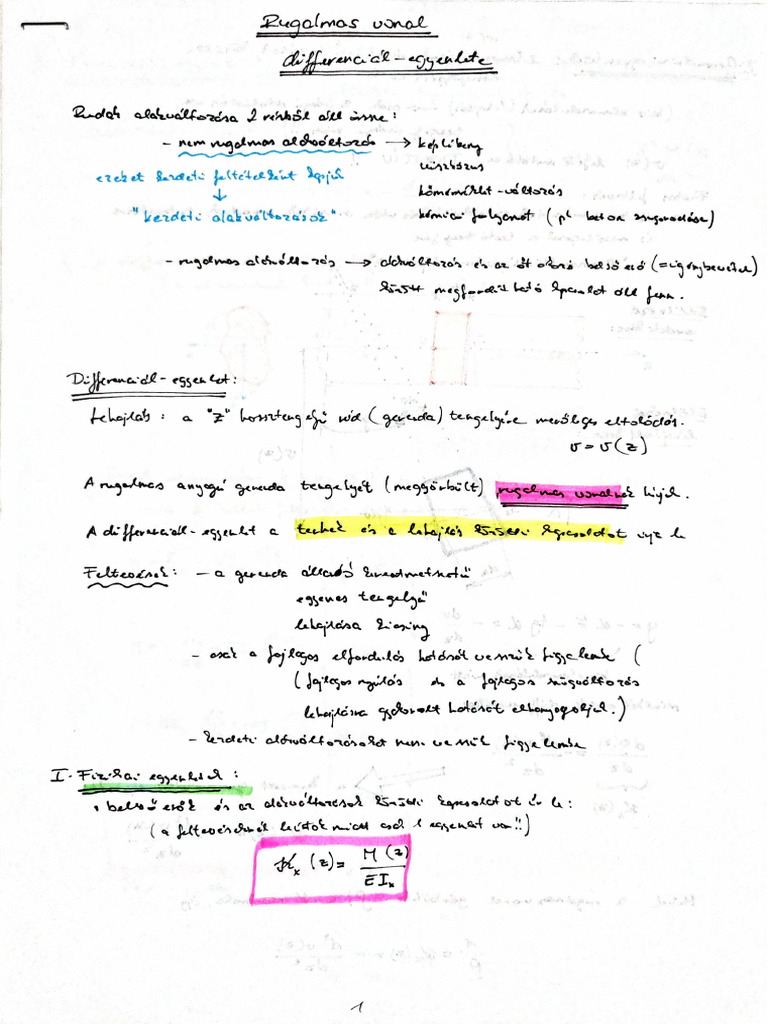 Rugalmas vonal
differenciál-egyenlete
Rudak alakváltozása 2 részből áll össze:
- nem rugalmas alakváltozás → képlékeny
viszkózus
ezeket kezdeti feltételként kapjuk
hőmérséklet-változás
↓
"kezdeti alakváltozások"
kémiai folyamat (pl beton zsugorodása)
- rugalmas alakváltozás → alakváltozás és az őt okozó belső erő (=igénybevétel)
között megfordítható kapcsolat áll fenn.
Differenciál-egyenlet:
Lehajlás: a "z" hossztengelyű rúd (gerenda) tengelyére merőleges eltolódás.
v = v(z)
A rugalmas anyagú gerenda tengelyét (meggörbült) rugalmas vonalnak hívjuk.
A differenciál-egyenlet a terhek és a lehajlás közötti kapcsolatot írja le
Feltevések: - a gerenda állandó keresztmetszetű
egyenes tengelyű
lehajlása kicsiny
- csak a fajlagos elfordulás hatását vesszük figyelembe (
(fajlagos nyúlás és a fajlagos szögváltozás
lehajlásra gyakorolt hatását elhanyagoljuk.)
- kezdeti alakváltozásokat nem vesszük figyelembe
I. Fizikai egyenletek:
• belső erők és az alakváltozások közötti kapcsolatot ír le:
(a feltevéseknél leírtak miatt csak 1 egyenlet van!!)
ϰx (z) = M(z) / EIx
1